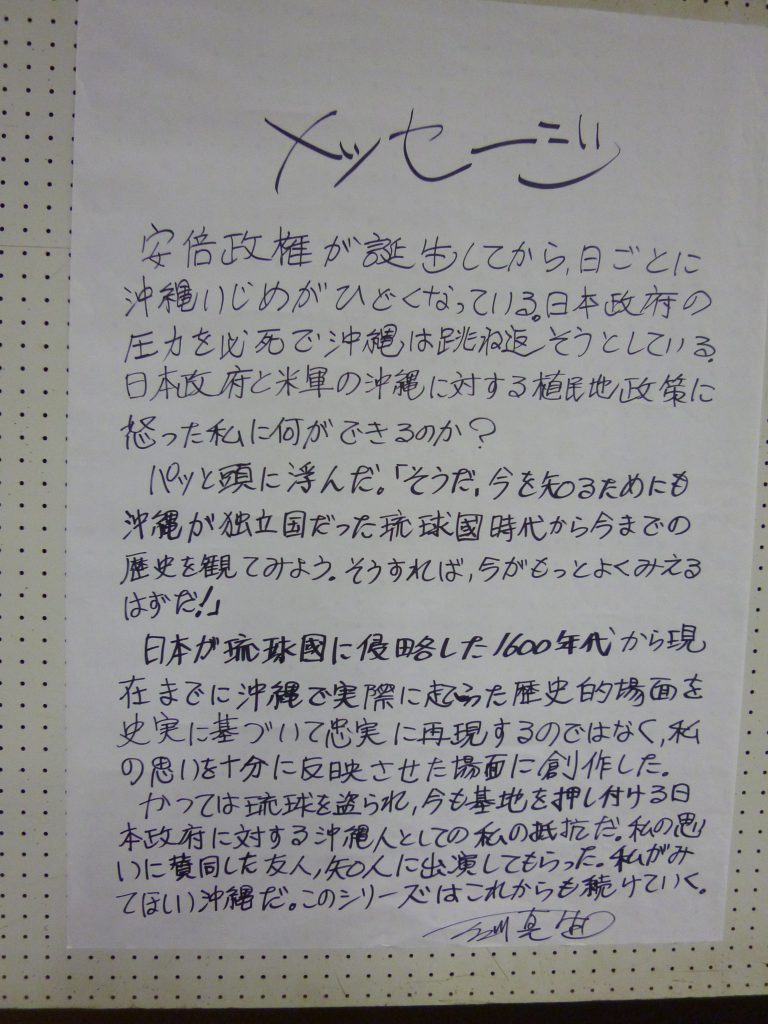 メッセージ
安倍政権が誕生してから,日ごとに
沖縄いじめがひどくなっている。日本政府の
圧力を必死で沖縄は跳ね返そうとしている。
日本政府と米軍の沖縄に対する植民地政策に
怒った私に何ができるのか?
パッと頭に浮んだ。「そうだ,今を知るためにも
沖縄が独立国だった琉球國時代から今までの
歴史を観てみよう。そうすれば,今がもっとよくみえる
はずだ!」
日本が琉球國に侵略した1600年代から現
在までに沖縄で実際に起こった歴史的場面を
史実に基づいて忠実に再現するのではなく,私
の思いを十分に反映させた場面に創作した。
かつては琉球を盗られ,今も基地を押し付ける日
本政府に対する沖縄人としての私の抵抗だ。私の思
いに賛同した友人,知人に出演してもらった。私がみ
てほしい沖縄だ。このシリーズはこれからも続けていく。
石川真生